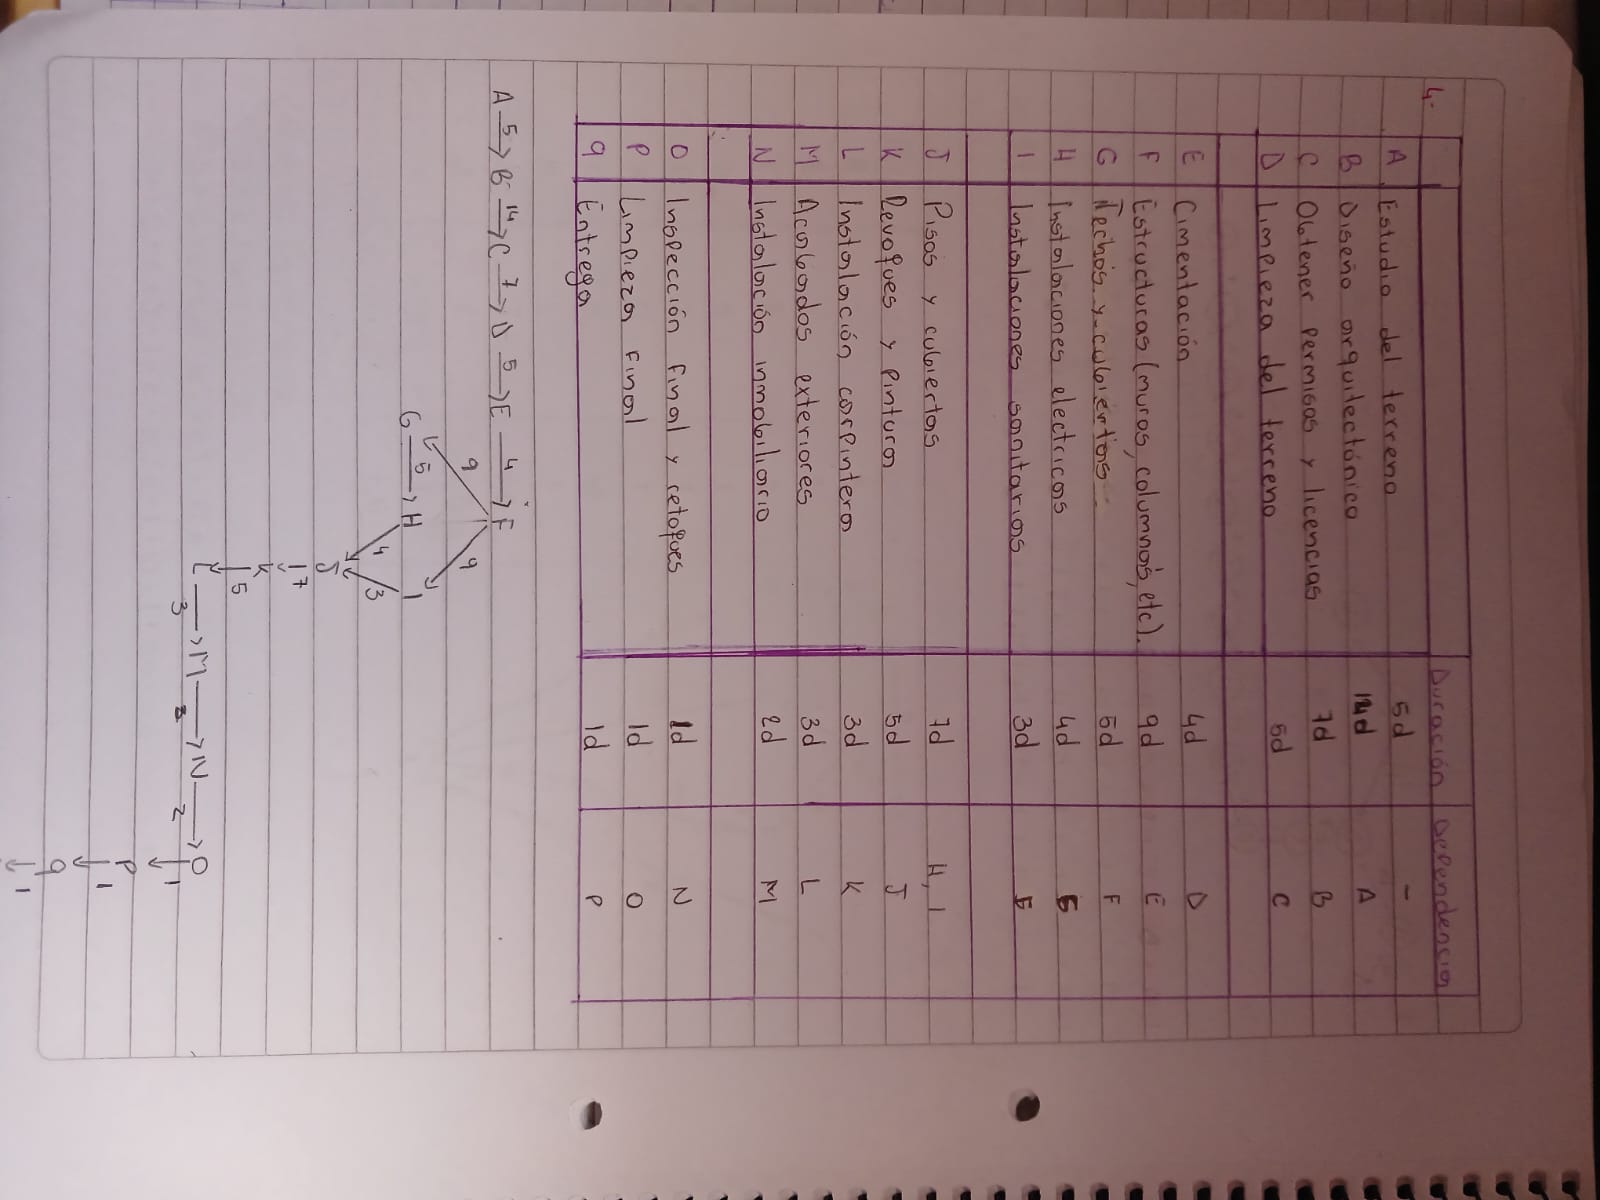 4.
Duración Dependencia
A Estudio del terreno 5d -
B Diseño arquitectónico 14d A
C Obtener permisos y licencias 7d B
D Limpieza del terreno 5d C
E Cimentación 4d D
F Estructuras (muros, columnas, etc). 9d E
G Techos y cubiertas 5d F
H Instalaciones electricas 4d
I Instalaciones sanitarias 3d
J Pisos y cubiertas 7d H, I
K Revoques y pinturas 5d J
L Instalación carpintera 3d K
M Acabados exteriores 3d L
N Instalación inmobiliario 2d M
O Inspección final y retoques 1d N
P Limpieza final 1d O
q Entrega 1d P
A 5 B 14 C 7 D 5 E 4 F
9 9
G 5 H I
4 3
J
7
K
5
L M N O
3 3 2 1
P
1
q
1